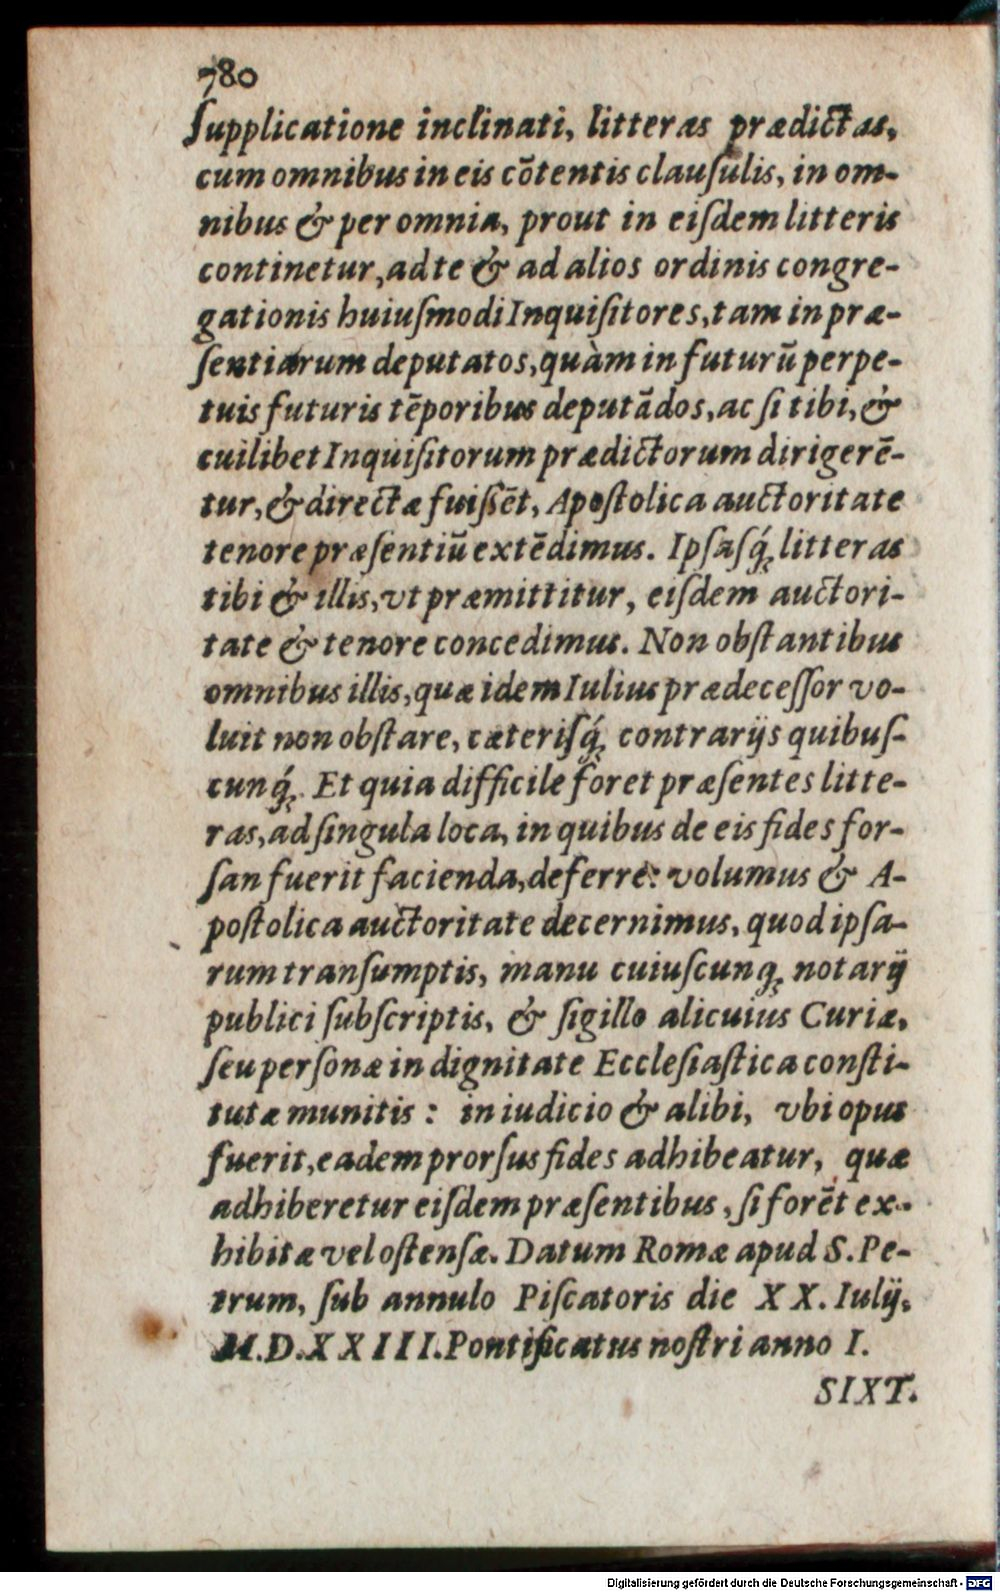 780
ſupplicatione inclinati, litteras prædictas,
cum omnibus in eis cõtentis clauſulis, in om-
nibus & per omnia, prout in eiſdem litteris
continetur, ad te & ad alios ordinis congre-
gationis huiuſmodi Inquiſitores, tam in præ-
ſentiarum deputatos, quàm in futurũ perpe-
tuis futuris tẽporibus deputãdos, ac ſi tibi, &
cuilibet Inquiſitorum prædictorum dirigerẽ-
tur, & directæ fuiſſẽt, Apoſtolica auctoritate
tenore præſentiũ extẽdimus. Ipſaſq́; litteras
tibi & illis, vt præmittitur, eiſdem auctori-
tate & tenore concedimus. Non obſtantibus
omnibus illis, quæ idem Iulius prædeceſſor vo-
luit non obſtare, cæteriſq́; contrarijs quibuſ-
cunq́;. Et quia difficile foret præſentes litte-
ras, ad ſingula loca, in quibus de eis fides for-
ſan fuerit facienda, deferre: volumus & A-
poſtolica auctoritate decernimus, quod ipſa-
rum tranſumptis, manu cuiuſcunq; notarij
publici ſubſcriptis, & ſigillo alicuius Curiæ,
ſeu perſonæ in dignitate Eccleſiaſtica conſti-
tutæ munitis: in iudicio & alibi, vbi opus
fuerit, eadem prorſus fides adhibeatur, quæ
adhiberetur eiſdem præſentibus, ſi forẽt ex-
hibitæ vel oſtenſæ. Datum Romæ apud S. Pe-
trum, ſub annulo Piſcatoris die XX. Iulij,
M.D.XXIII. Pontificatus noſtri anno I.
SIXT.
Digitalisierung gefördert durch die Deutsche Forschungsgemeinschaft - DFG